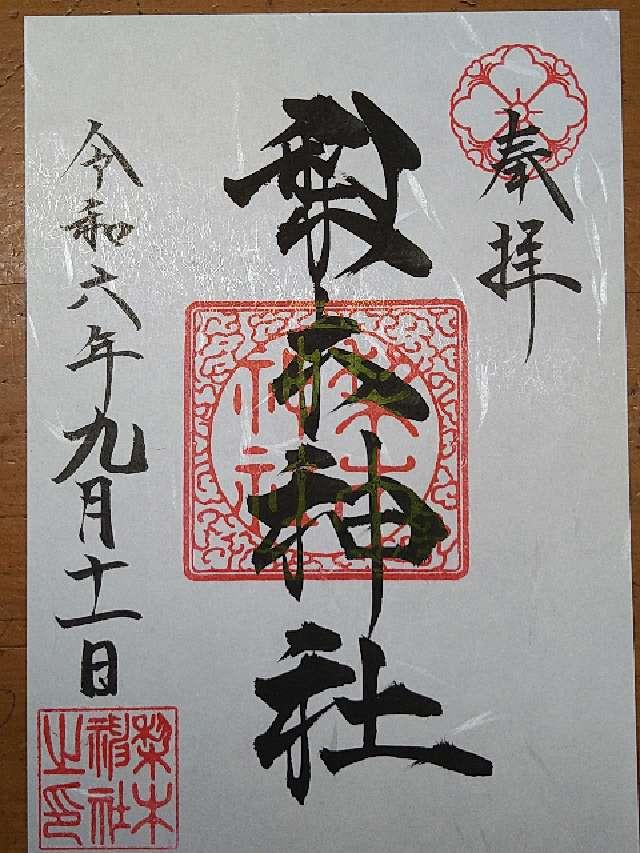 奉拝
梨木神社
梨木
神社
令和六年九月十一日
梨木
神社
之印